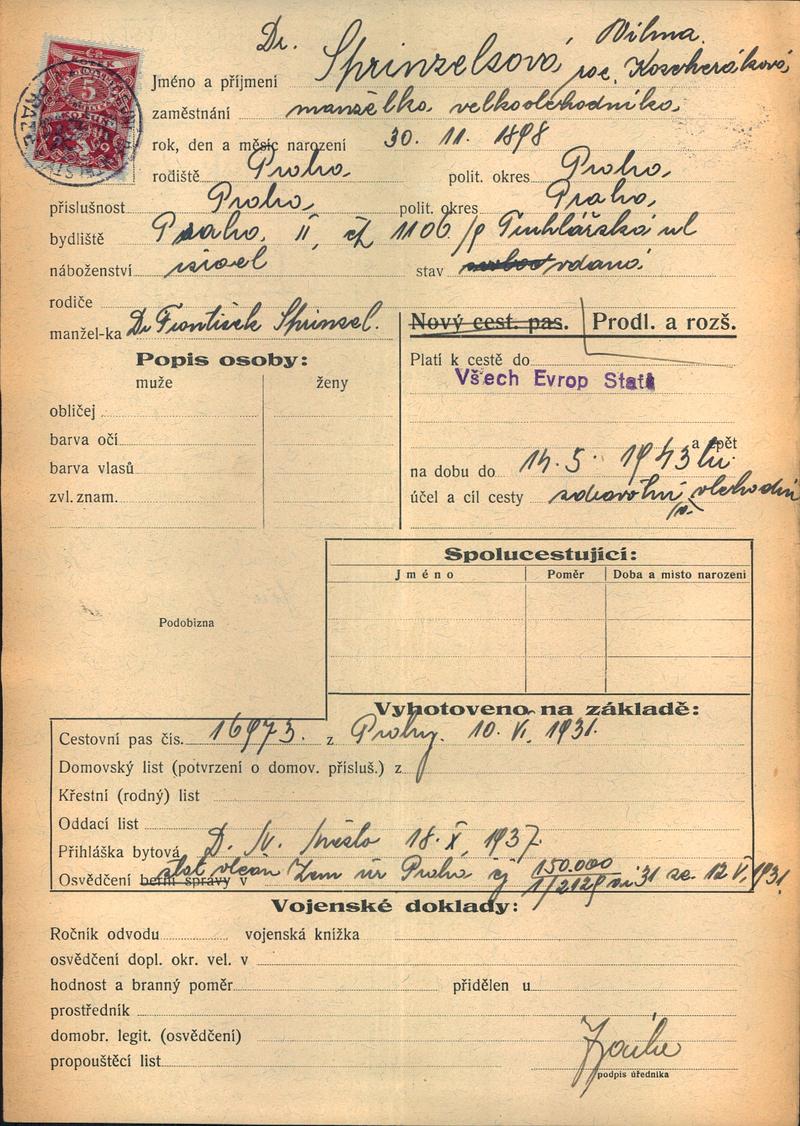 Dr. Sprinzelsová Vilma
Jméno a příjmení roz. Koscheráková
zaměstnání manželka velkoobchodníka
rok, den a měsíc narození 30. 11. 1898
rodiště Praha, polit. okres Praha,
příslušnost Praha, polit. okres Praha,
bydliště Praha, II, čp 1106/9 Truhlářská ul
náboženství israel stav vdaná
rodiče
manžel-ka Dr František Sprinzel.
Nový cest. pas. Prodl. a rozš.
Popis osoby:
muže ženy
Platí k cestě do
Všech Evrop Států
obličej
barva očí
barva vlasů
zvl. znam.
a zpět
na dobu do 14. 5. 1943
účel a cíl cesty zdravotní, obchodní
Spolucestující:
Jméno Poměr Doba a místo narození
Podobizna
Vyhotoveno na základě:
Cestovní pas čís. 16973. z Prahy. 10. VI. 1931.
Domovský list (potvrzení o domov. přísluš.) z
Křestní (rodný) list
Oddací list
Přihláška bytová D. N. Město 18. X. 1937.
Osvědčení berní správy v stat občan Zem úř Praha čj 150.000 31 ze 12 V. 1931.
Vojenské doklady:
Ročník odvodu vojenská knížka
osvědčení dopl. okr. vel. v
hodnost a branný poměr přidělen u
prostředník
domobr. legit. (osvědčení)
propouštěcí list
podpis úředníka